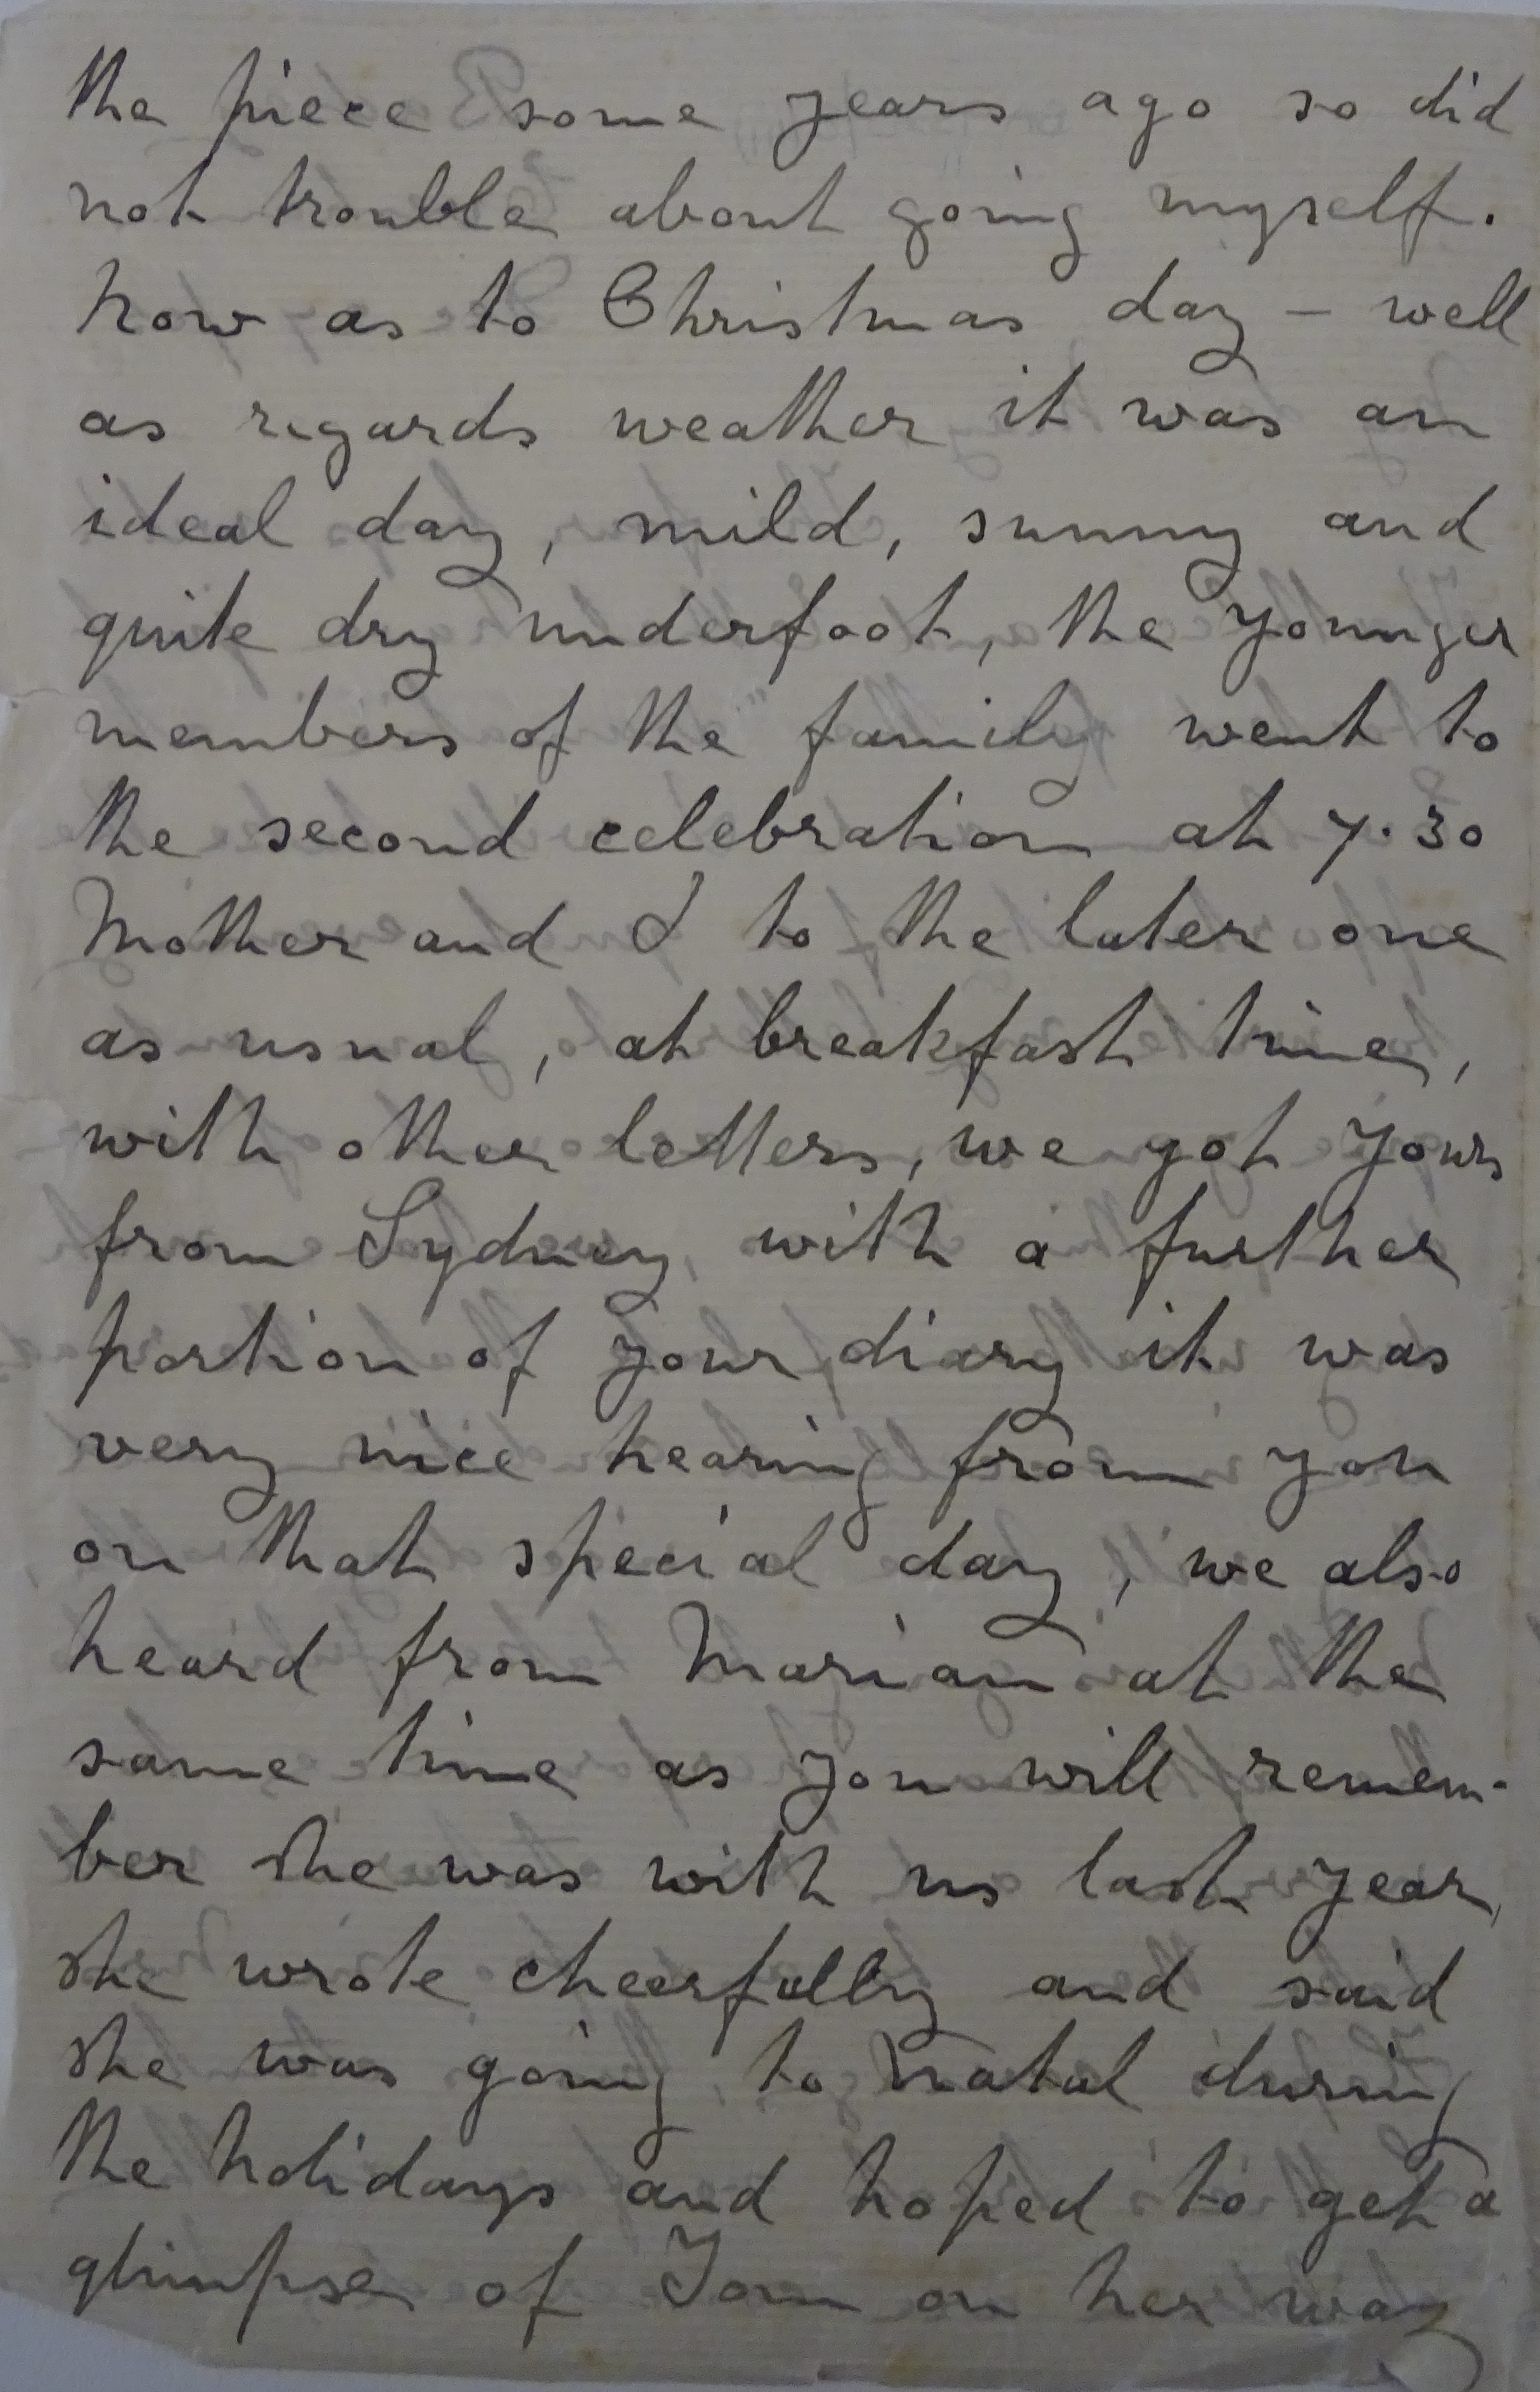 the piece some years ago so did
not trouble about going myself.
Now as to Christmas day – well
as regards weather it was an
ideal day, mild, sunny and
quite dry underfoot, the younger
members of the family went to
the second celebration at 7.30
Mother and I to the later one
as usual, at breakfast time,
with other letters, we got yours
from Sydney, with a further
portion of your diary it was
very nice hearing from you
on that special day, we also
heard from Marian at the
same time as you will remem-
ber she was with us last year,
she wrote cheerfully and said
she was going to Natal during
the holidays and hoped to get a
glimpse of Tom on her way